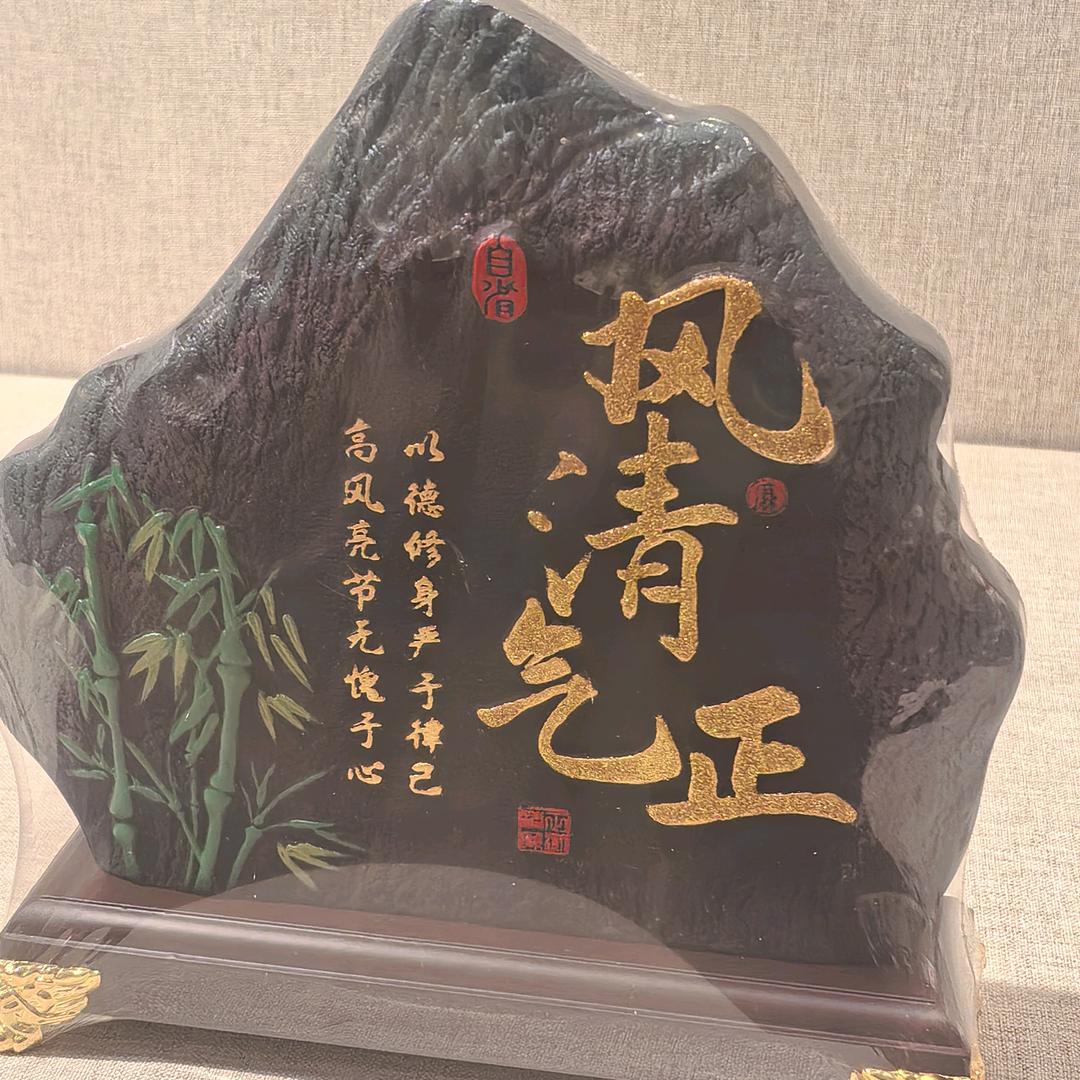 风清气正
自省
廉
以德修身严于律己
高风亮节无愧于心